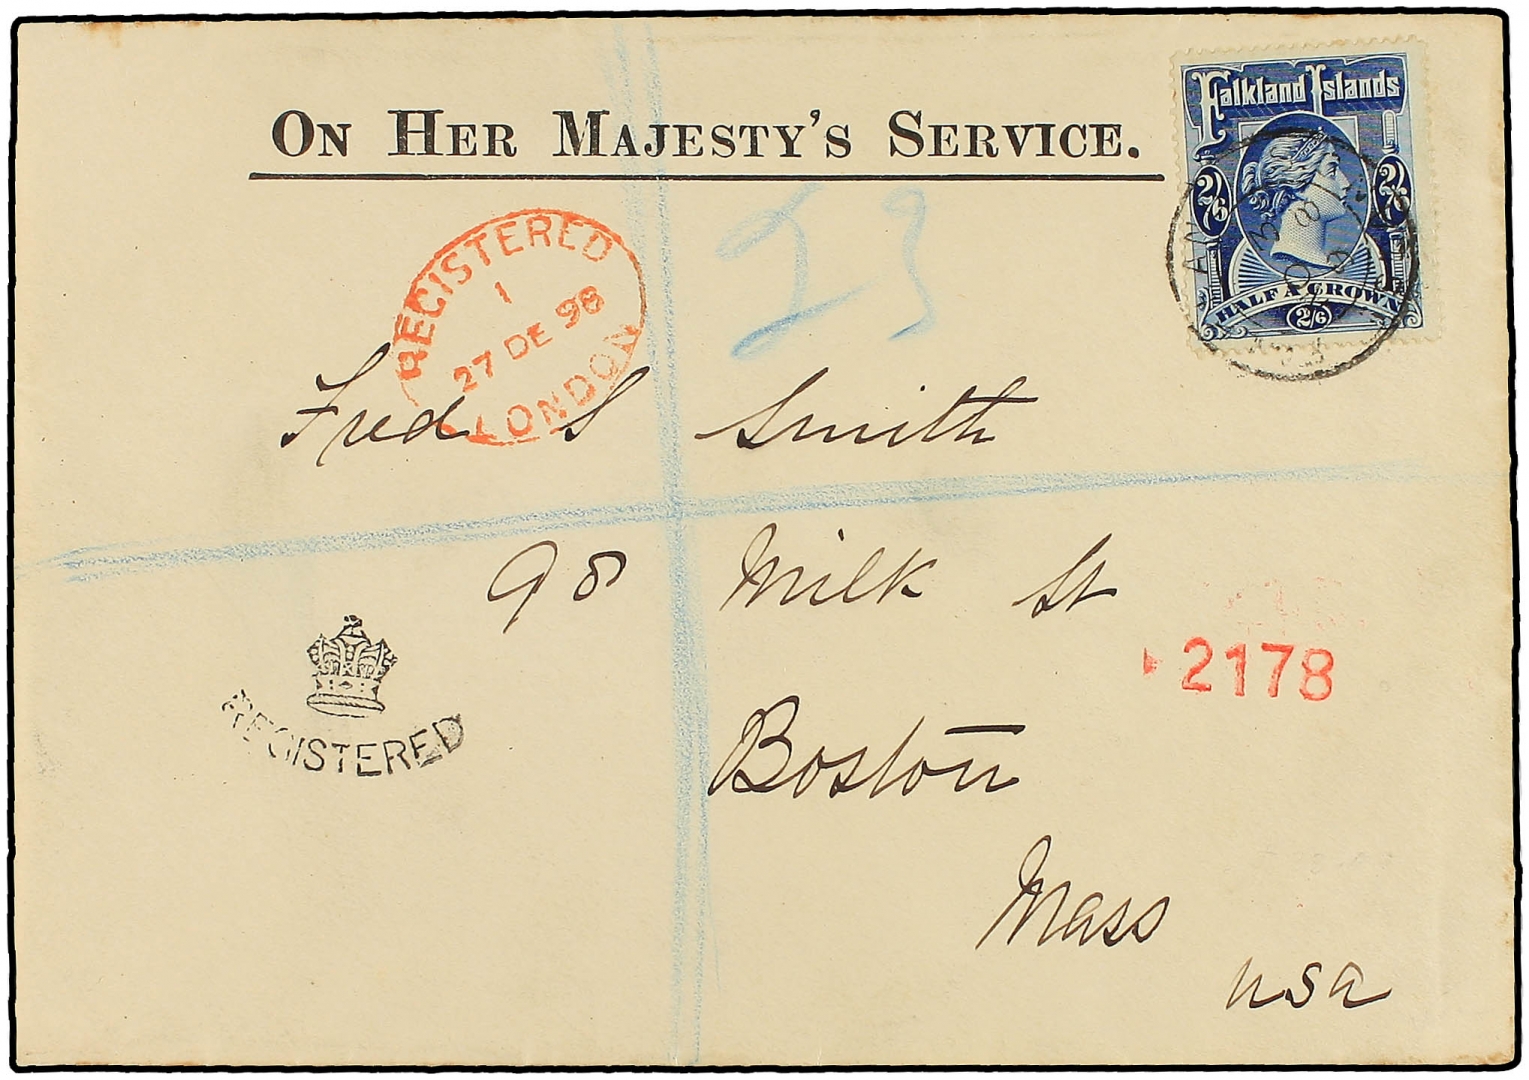 ON HER MAJESTY'S SERVICE.
Falkland Islands
2/6 2/6
HALF A CROWN
2/6
REGISTERED
1
27 DE 98
LONDON
23
Fred S Smith
98 Milk St
2178
REGISTERED
Boston
Mass
USA